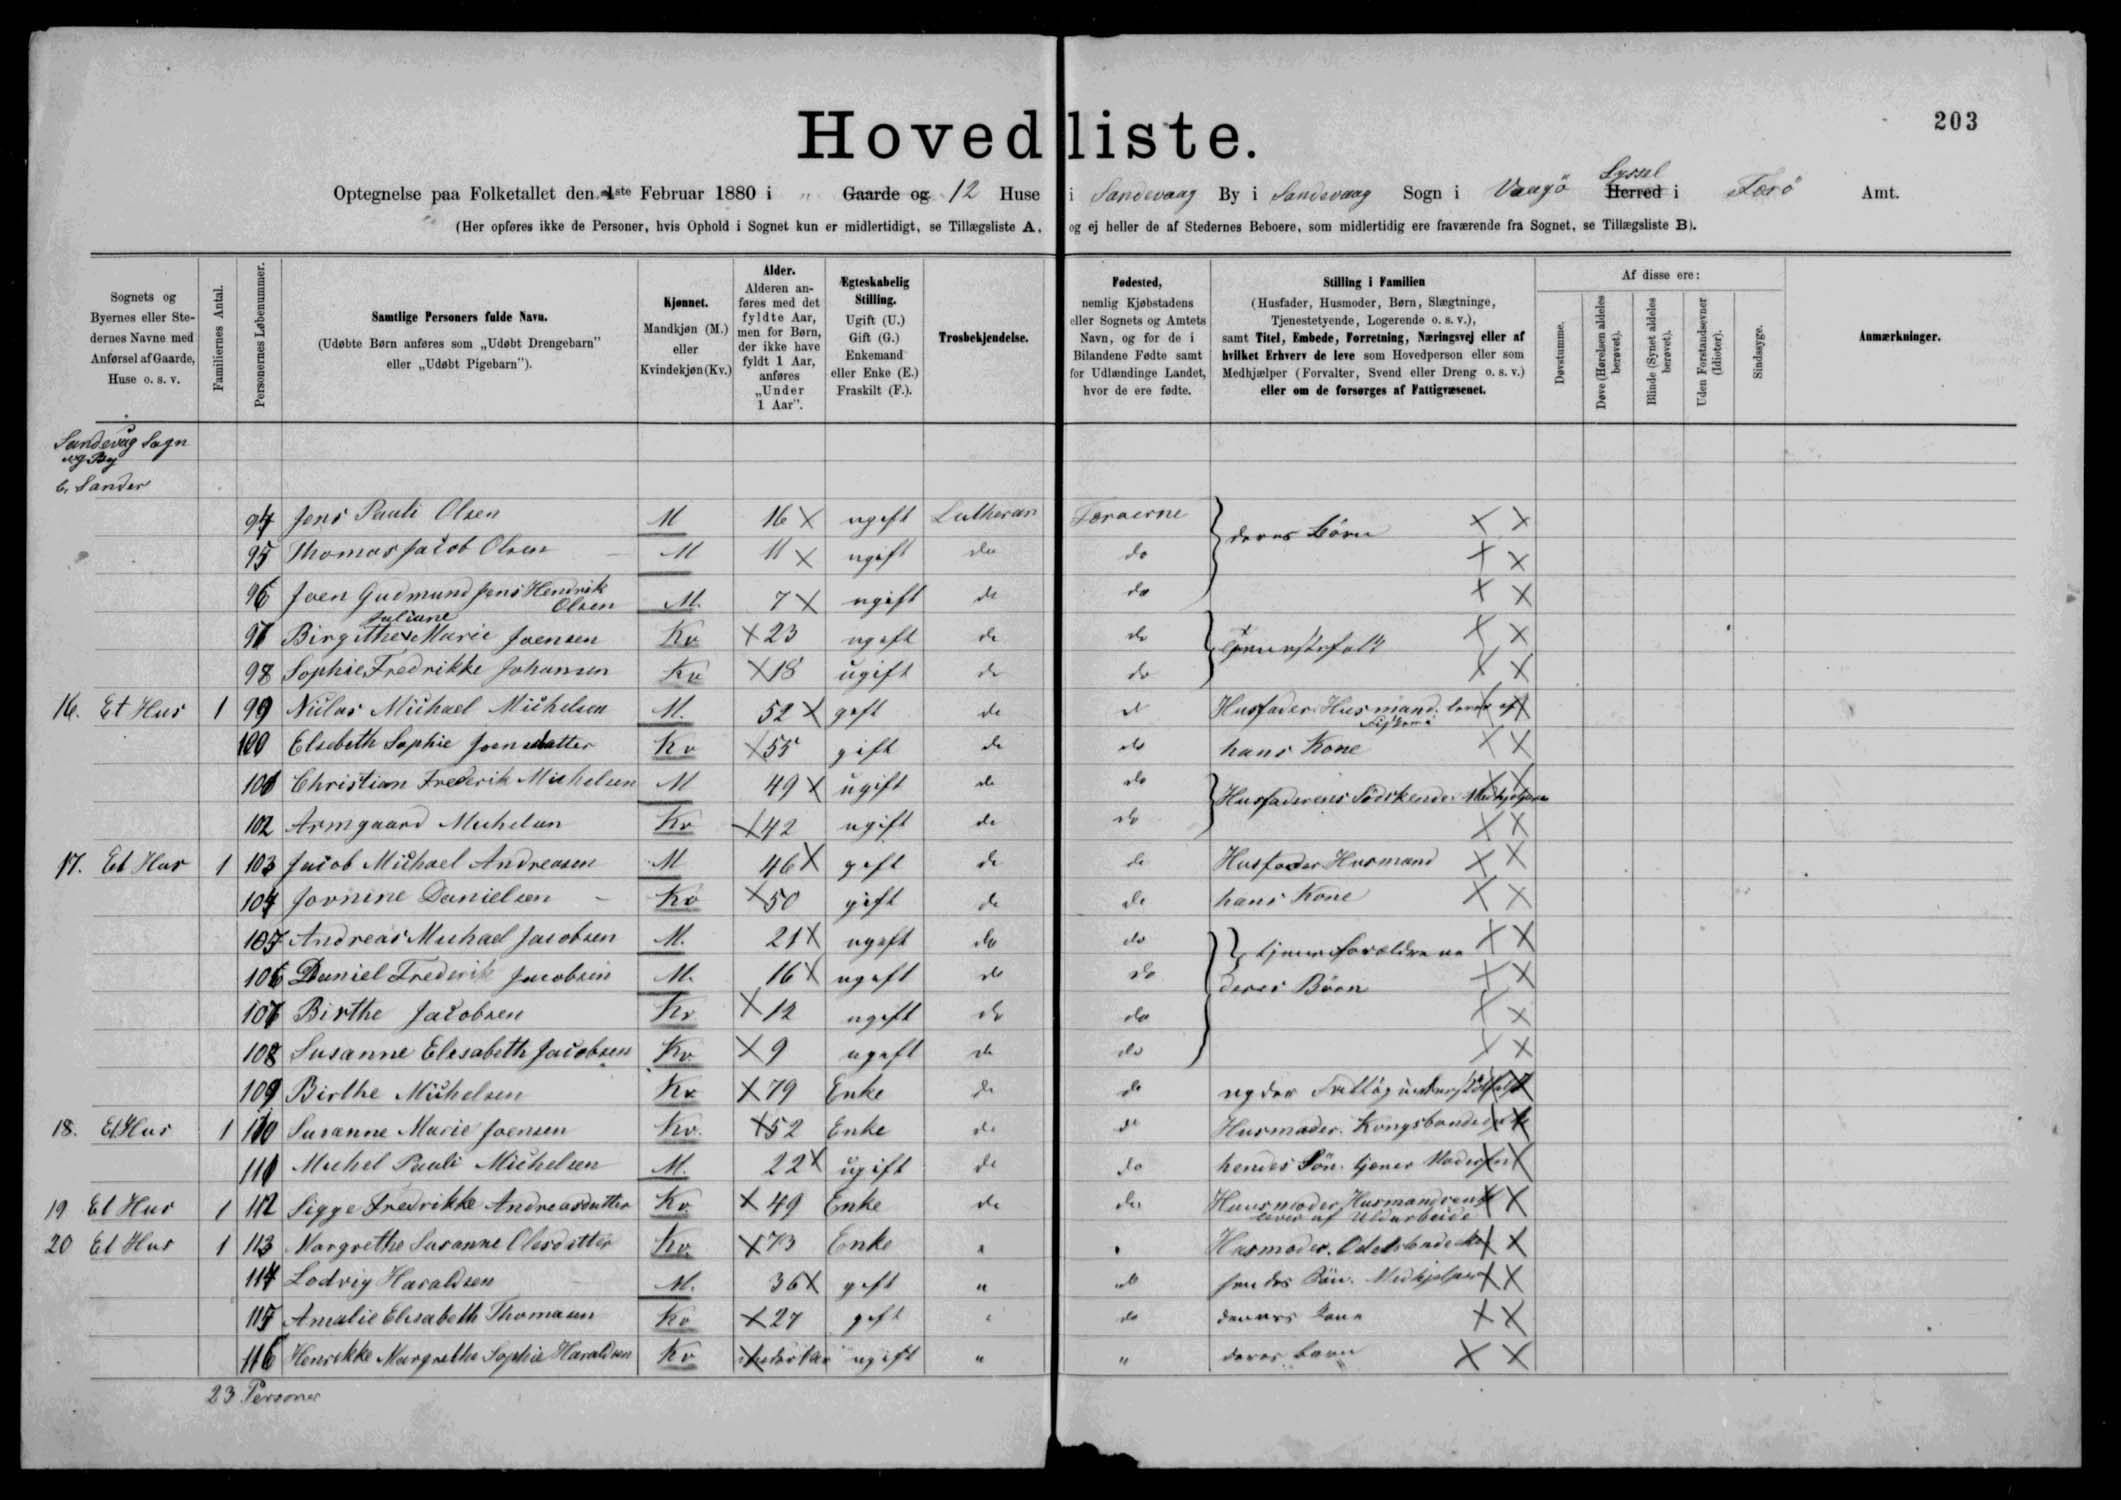 203
Hovedliste.
Optegnelse paa Folketallet den 1ste Februar 1880 i " Gaarde og 12 Huse i Sandevaag By i Sandevaag Sogn i Vaagö Syssel Herred i Færö Amt.
(Her opføres ikke de Personer, hvis Ophold i Sognet kun er midlertidigt, se Tillægsliste A, og ej heller de af Stedernes Beboere, som midlertidig ere fraværende fra Sognet, se Tillægsliste B).
Sognets og Byernes eller Stedernes Navne med Anførsel af Gaarde, Huse o. s. v.
Familiernes Antal.
Personernes Løbenummer.
Samtlige Personers fulde Navn.
(Udøbte Børn anføres som „Udøbt Drengebarn" eller „Udøbt Pigebarn").
Kjønnet.
Mandkjøn (M.) eller Kvindekjøn (Kv.)
Alder.
Alderen anføres med det fyldte Aar, men for Børn, der ikke have fyldt 1 Aar, anføres „Under 1 Aar".
Ægteskabelig Stilling.
Ugift (U.) Gift (G.) Enkemand eller Enke (E.) Fraskilt (F.).
Trosbekjendelse.
Fødested,
nemlig Kjøbstadens eller Sognets og Amtets Navn, og for de i Bilandene Fødte samt for Udlændinge Landet, hvor de ere fødte.
Stilling i Familien
(Husfader, Husmoder, Børn, Slægtninge, Tjenestetyende, Logerende o. s. v.),
samt Titel, Embede, Forretning, Næringsvej eller af hvilket Erhverv de leve som Hovedperson eller som Medhjælper (Forvalter, Svend eller Dreng o. s. v.) eller om de forsørges af Fattigvæsenet.
Af disse ere:
Døvstumme.
Døve (Hørelsen aldeles berøvet).
Blinde (Synet aldeles berøvet).
Uden Forstandsevner (Idioter).
Sindssyge.
Anmærkninger.
Sandevåg Sogn
og By
b, Sander
94 Jens Pauli Olsen M 16 X ugift Lutheran Færøerne deres Börn X X
95 Thomas Jacob Olsen M 11 X ugift do do X X
96 Joen Gudmund Jens Hendrik Olsen M. 7 X ugift do do X X
97 Birgithe Juliane Marie Joensen Kv X 23 ugift do do Tjenestefolk X X
98 Sophie Fredrikke Johansen Kv X 18 ugift do do X X
16. Et Hus 1 99 Niclas Michael Michelsen M. 52 X gift do do Husfader Husmand. lever af Fiskeri X
100 Elsebeth Sophie Joensdatter Kv X 55 gift do do hans Kone X X
101 Christian Frederik Michelsen M 49 X ugift do do Husfaderens Södskende. Medhjelpere X X
102 Armgaard Michelsen Kv X 42 ugift do do X X
17. Et Hus 1 103 Jacob Michael Andreasen M 46 X gift do do Husfader Husmand X X
104 Jovnine Danielsen Kv X 50 gift do do hans Kone X X
105 Andreas Michael Jacobsen M. 21 X ugift do do tjener forældrene X X
106 Daniel Frederik Jacobsen M. 16 X ugift do do deres Börn X X
107 Birthe Jacobsen Kv X 12 ugift do do X X
108 Susanne Elesabeth Jacobsen Kv. X 9 ugift do do X X
109 Birthe Michelsen Kv X 79 Enke do do
18. Et Hus 1 110 Susanne Marie Joensen Kv. X 52 Enke do do Husmoder. Kongsbonde X
111 Michel Pauli Michelsen M. 22 X ugift do do hendes Sön. tjener Moder X
19 Et Hus 1 112 Sigge Fredrikke Andreasdatter Kv X 49 Enke do do Husmoder, Husmandsenke X X
lever af Uldarbeide
20 Et Hus 1 113 Margrethe Susanne Olesdatter Kv. X 73 Enke " " Husmoder. Odelsbonde X X
114 Lodvig Haraldsen M. 36 X gift " do hendes Sön. Medhjelper X X
115 Amalie Elisabeth Thomasen Kv X 27 gift " do dennes Kone X X
116 Henrikke Margrethe Sophie Haraldsen Kv X ugift " " deres barn X X
23 Personer